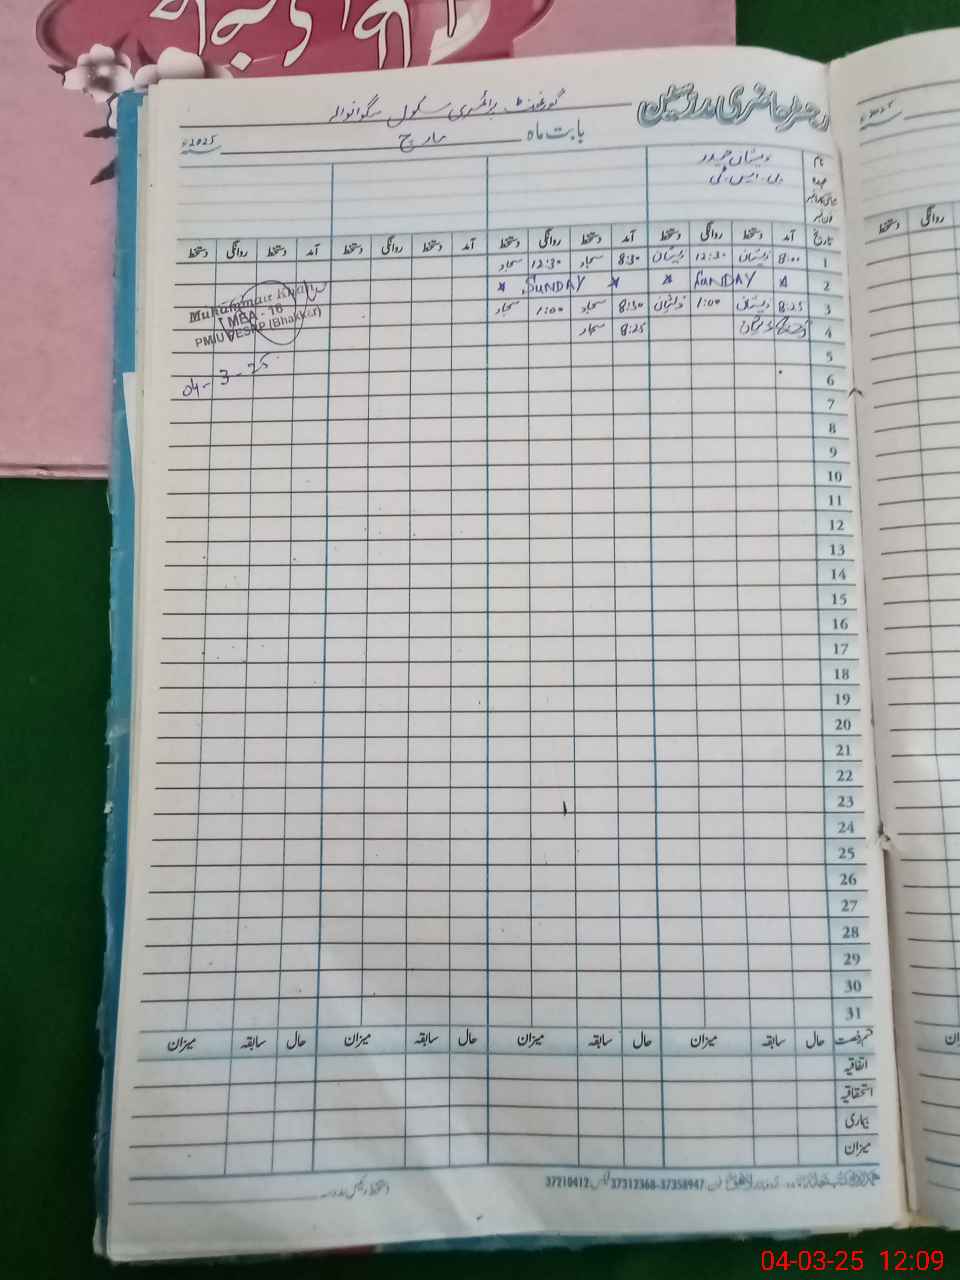 رجسٹر حاضری مدرسین
گورنمنٹ پرائمری سکول
بابت ماہ مارچ 2025ء
نام حیدر
عہدہ پی۔ایس۔ٹی
تاریخ آمد دستخط روانگی دستخط آمد دستخط روانگی دستخط آمد دستخط روانگی دستخط آمد دستخط روانگی دستخط
1 8:00 ذیشان 12:30 ذیشان 8:30 سجاد 12:30 سجاد
2 * SUNDAY * * SUNDAY *
3 8:25 ذیشان 1:00 ذیشان 8:30 سجاد 1:00 سجاد
4 8:25 سجاد
Muhammad Khan
MEA - 16
PMIU PESRP (Bhakkar)
04-3-25
5
6
7
8
9
10
11
12
13
14
15
16
17
18
19
20
21
22
23
24
25
26
27
28
29
30
31
قسم رخصت حال سابقہ میزان حال سابقہ میزان حال سابقہ میزان حال سابقہ میزان
اتفاقیہ
استحقاقیہ
بیماری
میزان
37210412 37312368-37358947
روانگی دستخط
04-03-25 12:09